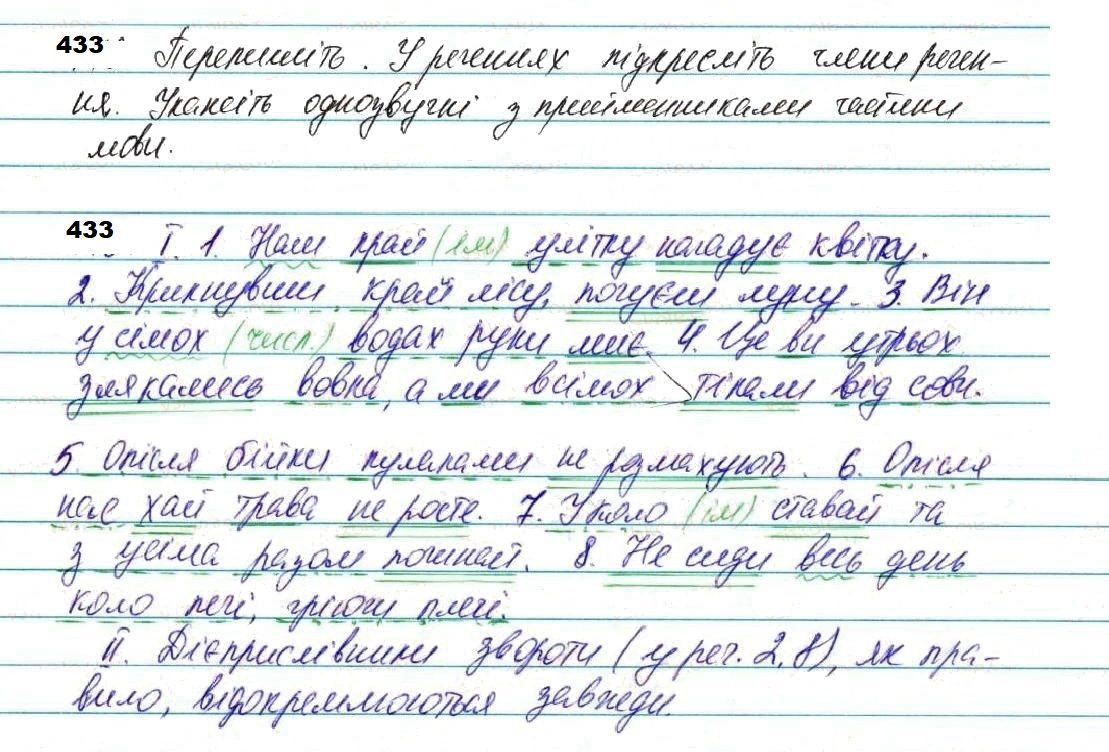 433 Перепишіть. У реченнях підкресліть члени речен-
ня. Укажіть однозвучні з прийменниками частини
мови.
433 I. 1. Наш край (ім) улітку нагадує квітку.
2. Крикнувши край лісу, почуєш луну. 3. Він
у сімох (числ.) водах руки миє. 4. Це ви утрьох
злякались вовка, а ми всімох тікали від сови.
5. Опісля бійки кулаками не розмахують. 6. Опісля
нас хай трава не росте. 7. У коло (ім) ставай та
з усіма разом починай. 8. Не сиди весь день
коло печі, гріючи плечі.
II. Дієприслівникові звороти (у реч. 2, 8), як пра-
вило, відокремлюються завжди.